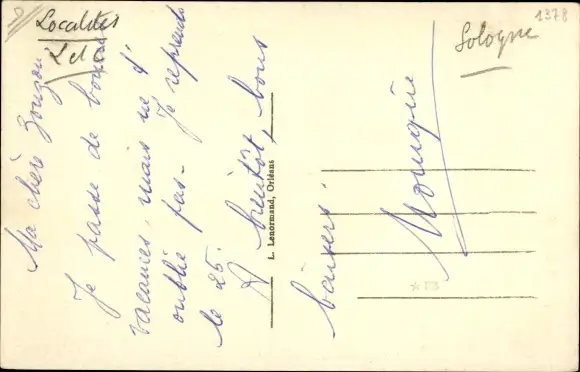 Localités
Sologne
1378
Ma chère Zouzou
Je passe de bonnes
vacances, mais ne t'
oublie pas - Je reprends
le 25.
A bientôt, bons
baisers.
Monique
L. Lenormand, Orléans